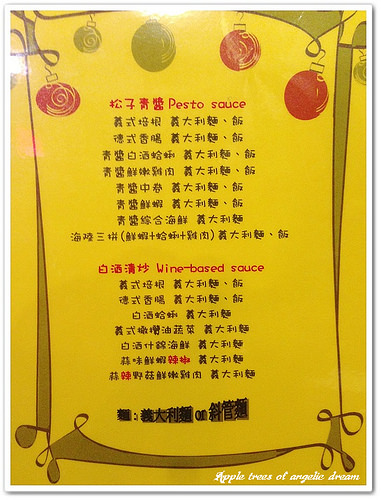 松子青醬 Pesto sauce
義式培根 義大利麵、飯
德式香腸 義大利麵、飯
青醬白酒蛤蜊 義大利麵、飯
青醬鮮嫩雞肉 義大利麵、飯
青醬中卷 義大利麵、飯
青醬鮮蝦 義大利麵、飯
青醬綜合海鮮 義大利麵
海陸三拼(鮮蝦+蛤蜊+雞肉)義大利麵、飯
白酒清炒 Wine-based sauce
義式培根 義大利麵、飯
德式香腸 義大利麵、飯
白酒蛤蜊 義大利麵
義式橄欖油蔬菜 義大利麵
白酒什錦海鮮 義大利麵
蒜味鮮蝦辣椒 義大利麵
蒜辣野菇鮮嫩雞肉 義大利麵
麵：義大利麵 or 斜管麵
Apple trees of angelic dream